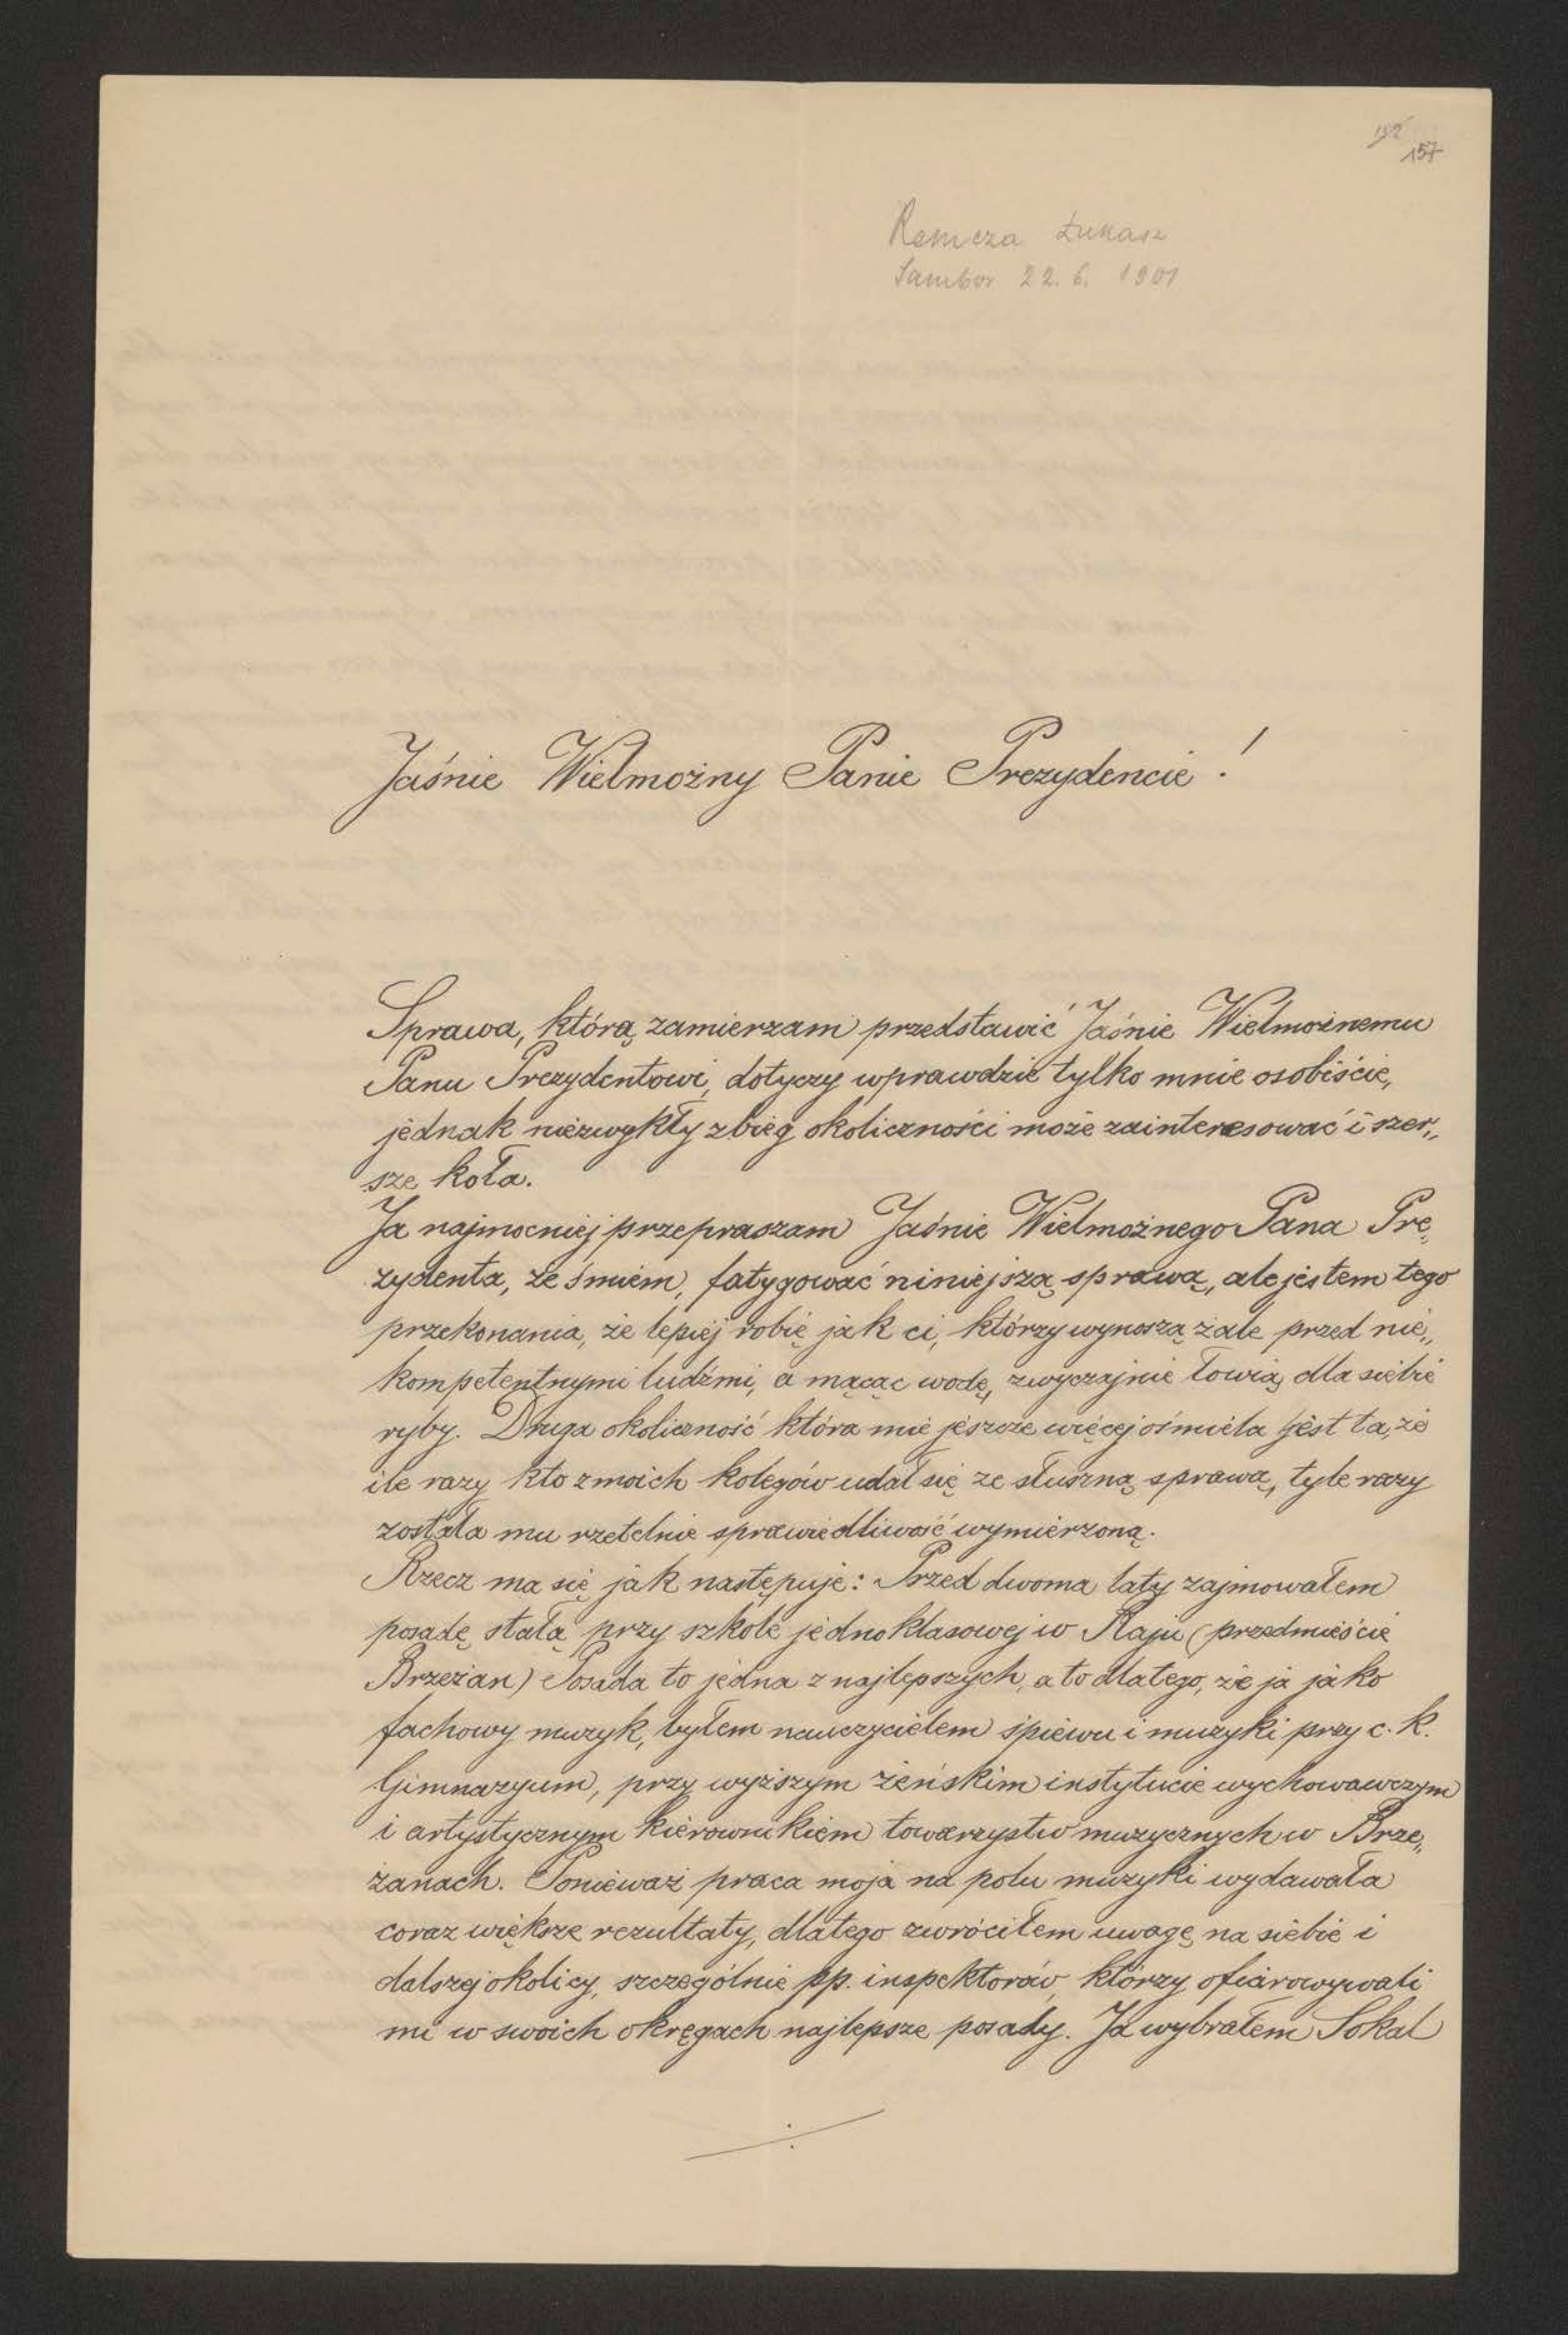 157
Łukasz
Sambor 22. 6. 1901
Jaśnie Wielmożny Panie Prezydencie!
Sprawa, którą zamierzam przedstawić Jaśnie Wielmożnemu
Panu Prezydentowi, dotyczy wprawdzie tylko mnie osobiście,
jednak niezwykły zbieg okoliczności może zainteresować i szer„
sze koła.
Ja najmocniej przepraszam Jaśnie Wielmożnego Pana Pre„
zydenta, że śmiem, fatygować niniejszą sprawą, ale jestem tego
przekonania, że lepiej robię jak ci, którzy wynoszą żale przed nie„
kompetentnymi ludźmi, a mącąc wodę, zwyczajnie łowią dla siebie
ryby. Druga okoliczność która mie jeszcze więcej ośmiela jest ta, że
ile razy kto z moich kolegów udał się ze słuszną sprawą, tyle razy
została mu rzetelnie sprawiedliwość wymierzoną.
Rzecz ma się jak następuje: Przed dwoma laty zajmowałem
posadę stałą przy szkole jednoklasowej w Raju (przedmieście
Brzeżan) Posada to jedna z najlepszych, a to dlatego, że ja jako
fachowy muzyk, byłem nauczycielem śpiewu i muzyki przy c. k.
Gimnazyum, przy wyższym żeńskim instytucie wychowawczym
i artystycznym kierownikiem towarzystw muzycznych w Brze„
żanach. Ponieważ praca moja na polu muzyki wydawała
coraz większe rezultaty, dlatego zwróciłem uwagę na siebie i
dalszej okolicy, szczególnie pp. inspektorów, którzy ofiarowywali
mi w swoich okręgach najlepsze posady. Ja wybrałem Sokal